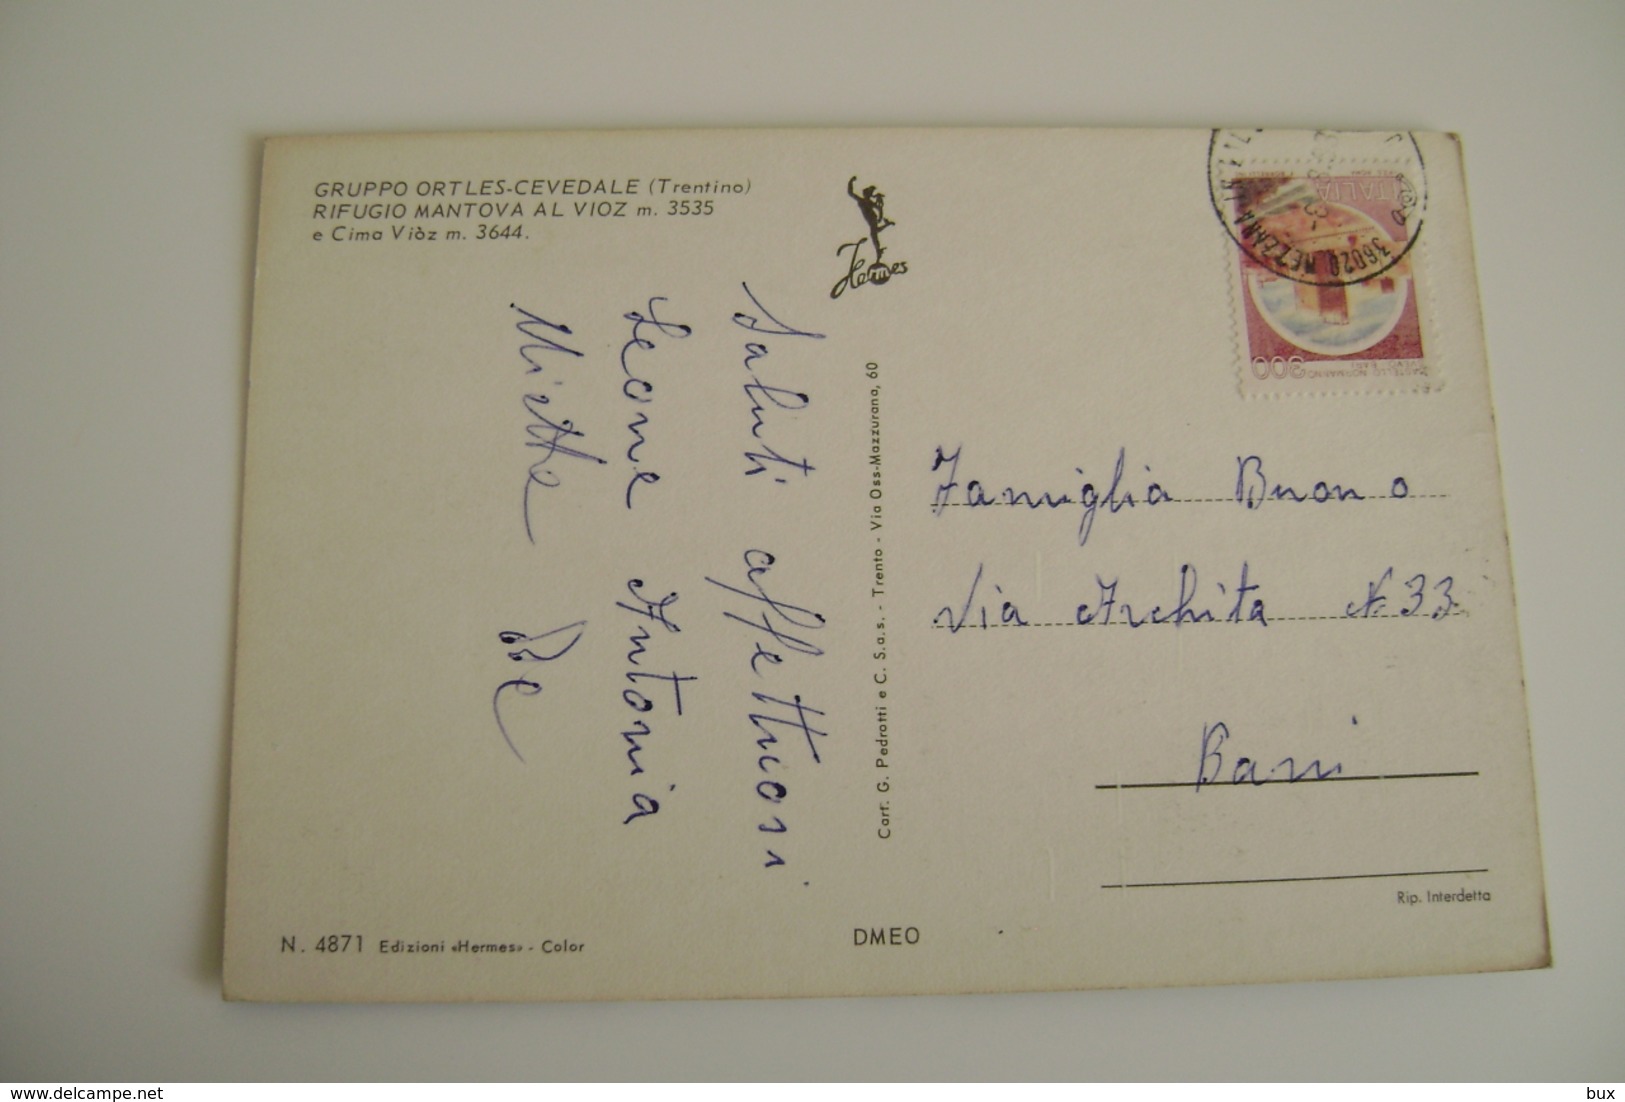 GRUPPO ORTLES-CEVEDALE (Trentino)
RIFUGIO MANTOVA AL VIOZ m. 3535
e Cima Viòz m. 3644.
Hermes
Saluti affettuosi
Leone Antonia
Mirthe
Cart. G. Pedrotti e C. S.a.s. - Trento - Via Oss-Mazzurana, 60
ITALIA
300
CASTELLO NORMANNO
38020 MEZZANA
Famiglia Buono
Via Archita N. 33
Bari
Rip. Interdetta
N. 4871 Edizioni «Hermes» - Color
DMEO
bux
delcampe.net